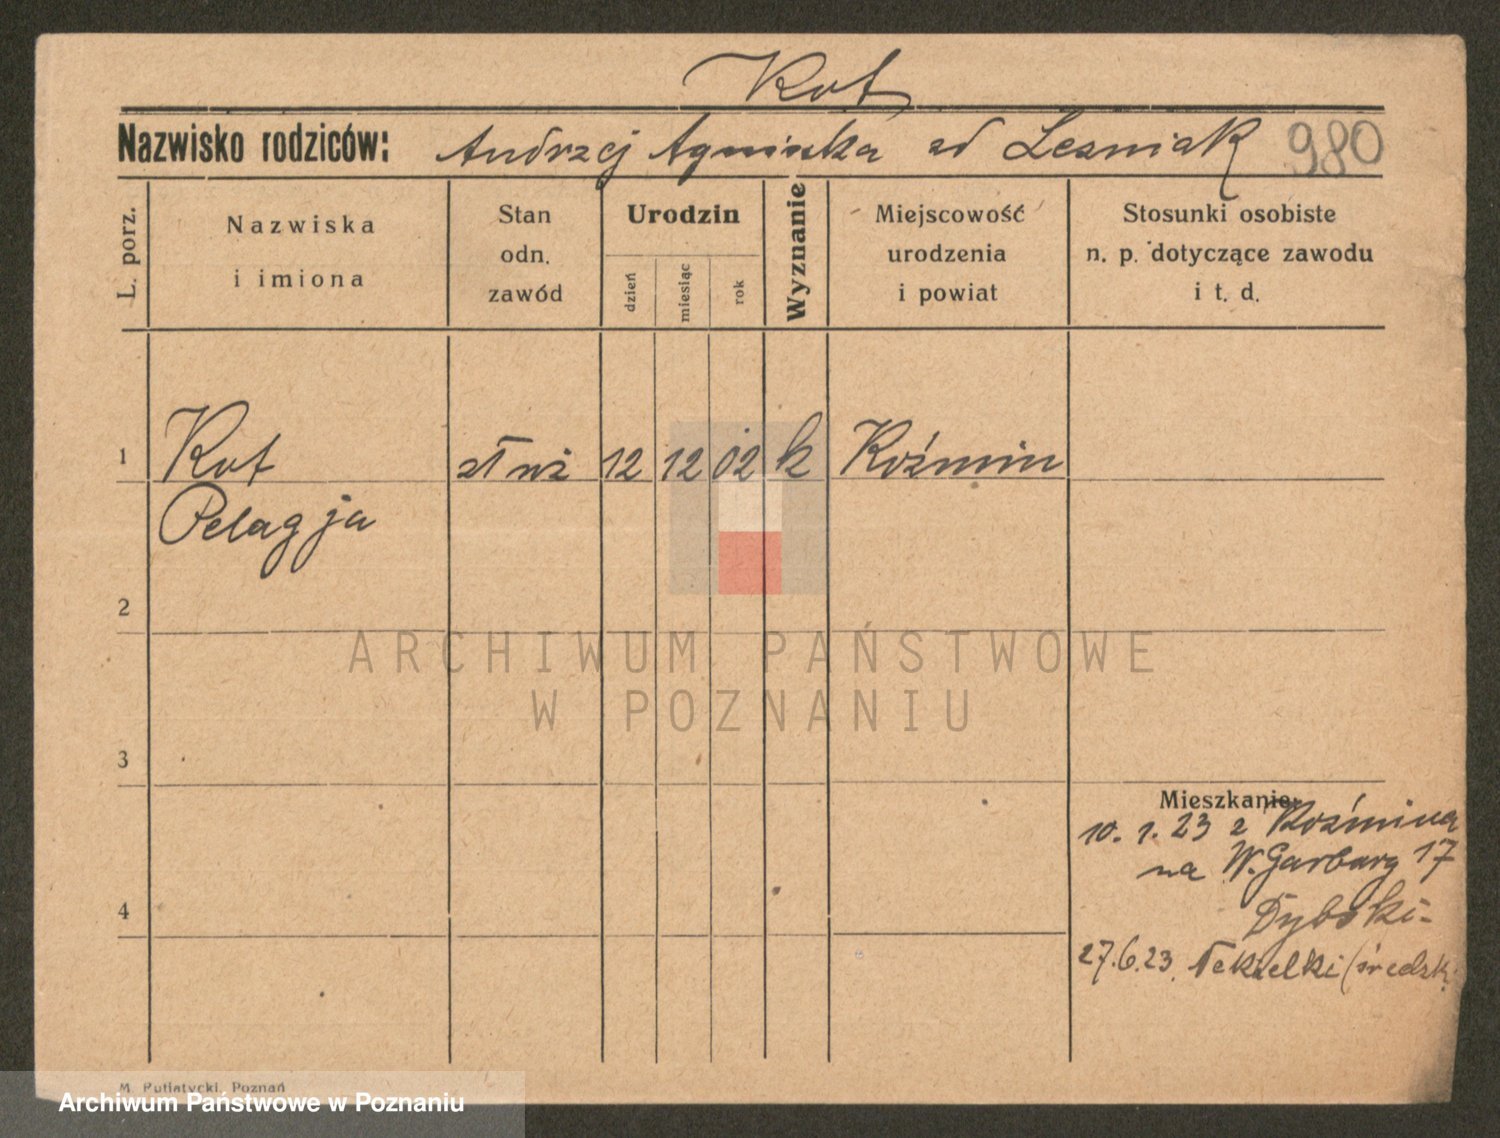 Kot
Nazwisko rodziców: Andrzej Agniszka zd Leśniak 980
L. porz.
Nazwiska
i imiona
Stan
odn.
zawód
Urodzin
dzień
miesiąc
rok
Wyznanie
Miejscowość
urodzenia
i powiat
Stosunki osobiste
n. p. dotyczące zawodu
i t. d.
1 Kot 12 12 02 k Koźmin
Pelagja
2
3
4
Mieszkanie:
10. 1. 23 z Koźmina
na W. Garbary 17
Dybski-
27.6.23.
M. Putiatycki, Poznań
ARCHIWUM PAŃSTWOWE
W POZNANIU
Archiwum Państwowe w Poznaniu